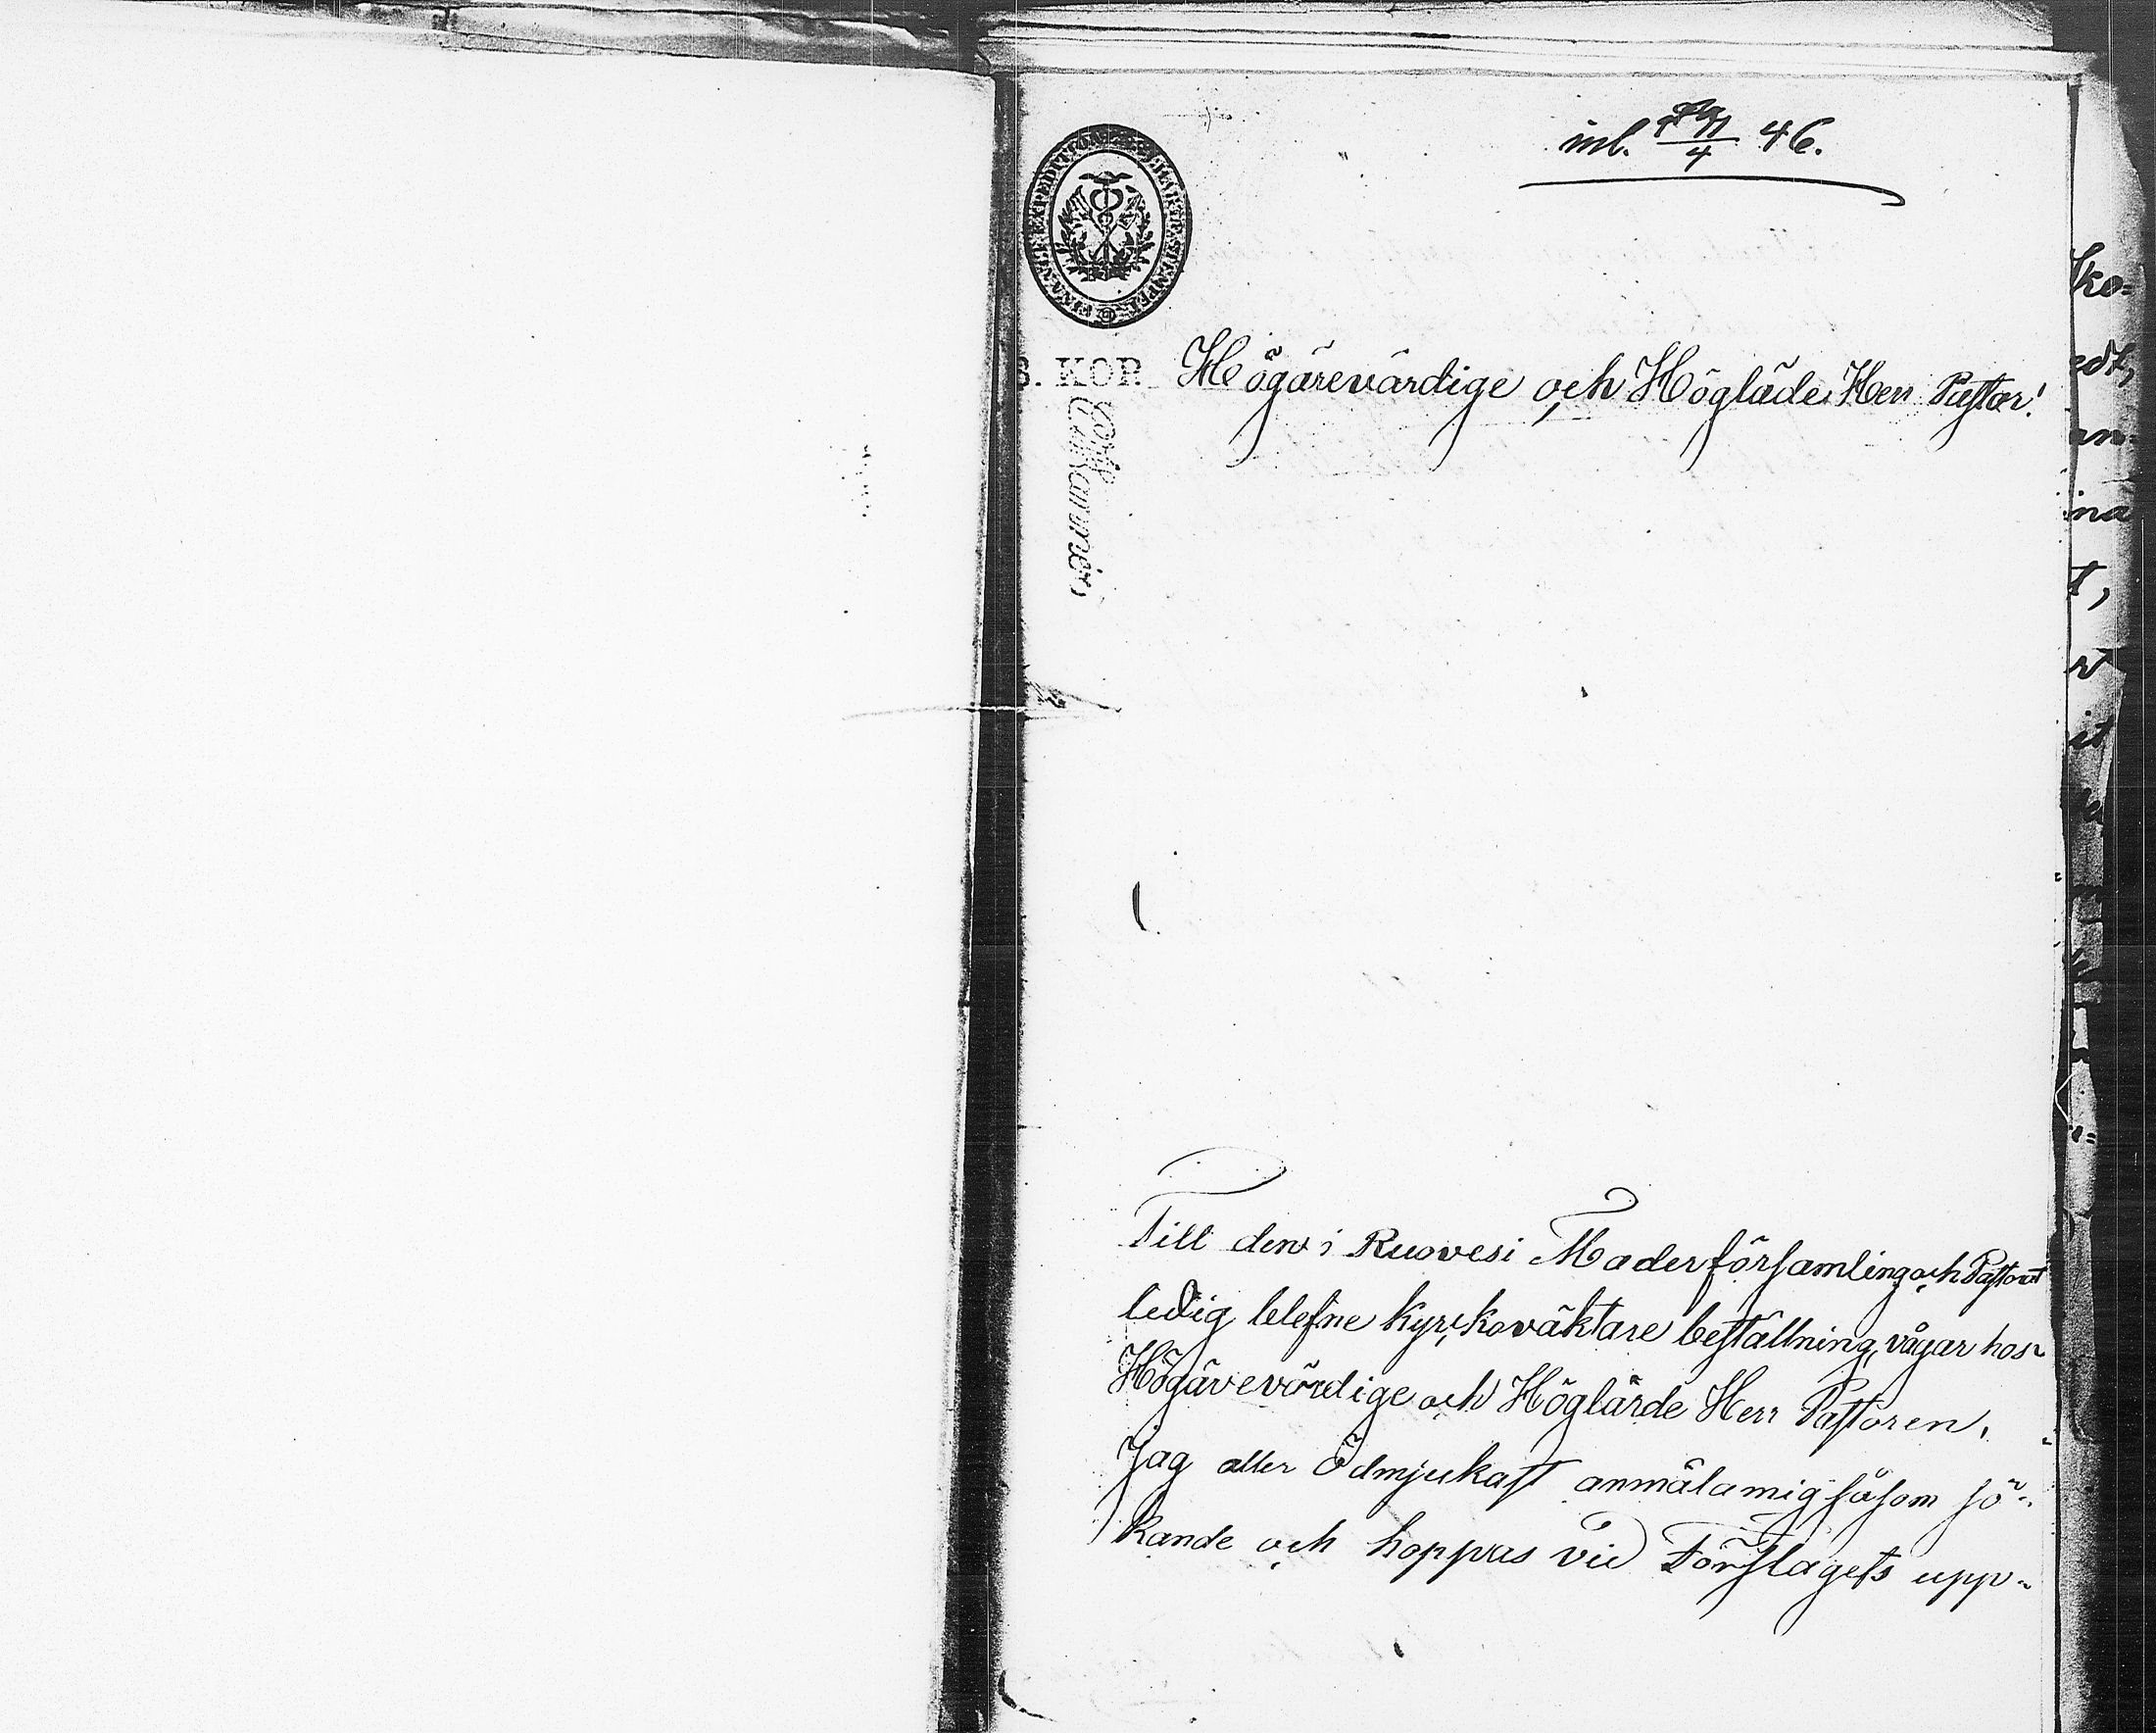 inl. 4 46.
FINANCE EXPEDITION CHARTÆ STEMPEL
3. KOP.
Högärevärdige och Högläde Herr Pastor!
Till den i Ruovesi Moderförsamling och Pastorat
ledig blefne kyrckoväktare beställning, vågar hos
Högärevördige och Höglärde Herr Pastoren,
Jag aller Ödmjukast anmäla mig såsom sö-
kande och hoppas vid Förslagets upp-